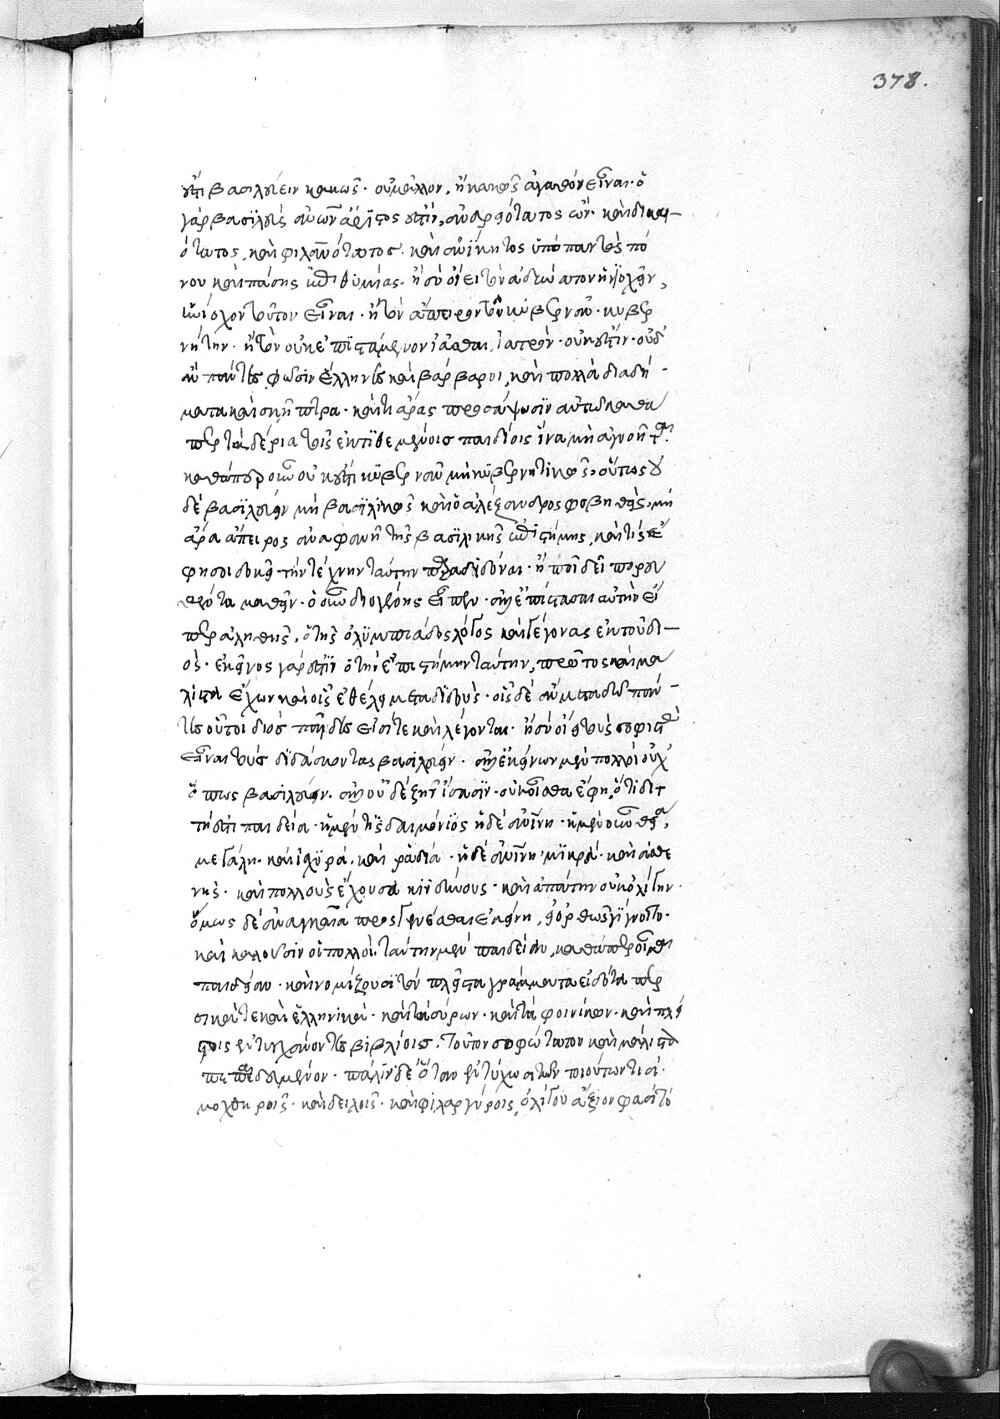 378.
ἐστὶ βασιλεύειν κακῶς· οὐ μᾶλλον, ἢ κακῶς ἀγαθὸν εἶναι· ὁ
γὰρ βασιλεὺς ἀνθρώπων ἄριστός ἐστιν, ἀνδρειότατος ὢν· καὶ δικαι-
ότατος, καὶ φιλανθρωπότατος· καὶ ἀνίκητος ὑπὸ παντὸς πό
νου καὶ πάσης ἐπιθυμίας· ἢ σὺ οἴει τὸν ἀδύνατον ἡνιοχεῖν,
ἡνίοχον τοῦτον εἶναι· ἢ τὸν ἄπειρον τοῦ κυβερνᾶν· κυβερ
νήτην· ἢ τὸν οὐκ ἐπιστάμενον ἰᾶσθαι, ἰατρόν· οὐκ ἔστιν· οὐδ'
ἂν πάντες φῶσιν ἕλληνες καὶ βάρβαροι, καὶ πολλὰ διαδή-
ματα καὶ σκῆπτρα· καὶ τιάρας προσάψωσιν αὐτῷ καθά
περ τὰ δέραια τοῖς ἐκτιθεμένοις παιδίοις ἵνα μὴ ἀγνοῆται
καθάπερ οὖν οὐκ ἔστι κυβερνᾶν μὴ κυβερνητικῶς, οὕτως οὐ
δὲ βασιλεύειν μὴ βασιλικῶς καὶ ὁ ἀλέξανδρος φοβηθεὶς, μὴ
ἄρα ἄπειρος ἀναφανῇ τῆς βασιλικῆς ἐπιστήμης, καὶ τίς ἔ
φη σοι δοκεῖ τὴν τέχνην ταύτην παραδιδόναι· ἢ ποῖ δεῖ πορευ
θέντα μαθεῖν· ὁ οὖν διογένης εἶπεν· ἀλλ' ἐπίστασαι αὐτὴν εἴ
περ ἀληθὴς, ὁ τῆς ὀλυμπιάδος λόγος καὶ γέγονας ἐκ τοῦ δι-
ός· ἐκεῖνος γάρ ἐστιν ὁ τὴν ἐπιστήμην ταύτην, πρῶτος καὶ μά
λιστα ἔχων καὶ οἷς ἐθέλει μεταδιδούς· οἷς δὲ ἂν μεταδῷ πάν-
τες οὗτοι διὸς παῖδές εἰσί τε καὶ λέγονται· ἢ σὺ οἴει τοὺς σοφιστὰς
εἶναι τοὺς διδάσκοντας βασιλεύειν· ἀλλ' ἐκείνων μὲν πολλοὶ οὐχ
ὅπως βασιλεύειν· ἀλλ' οὐδὲ ζῆν ἴσασιν· οὐκ οἶσθα ἔφη, ὅτι διτ
τή ἐστι παιδεία· ἡ μέν τις δαιμόνιος ἡ δὲ ἀνθρωπίνη· ἡ μὲν οὖν θεία,
μεγάλη· καὶ ἰσχυρά, καὶ ῥᾳδία· ἡ δὲ ἀνθρωπίνη μικρά· καὶ ἀσθε
νής· καὶ πολλοὺς ἔχουσα κινδύνους· καὶ ἀπάτην οὐκ ὀλίγην·
ὅμως δὲ ἀναγκαία προσγενέσθαι ἐκείνῃ, εἰ ὀρθῶς γίγνοιτο·
καὶ καλοῦσιν οἱ πολλοὶ ταύτην μὲν παιδείαν, καθάπερ οἶμαι
παιδιάν· καὶ νομίζουσι τὸν πλεῖστα γράμματα εἰδότα περ
σικά τε καὶ ἑλληνικά· καὶ τὰ σύρων· καὶ τὰ φοινίκων· καὶ πλεί
στοις ἐντυγχάνοντα βιβλίοις· τοῦτον σοφώτατον καὶ μάλιστα
πεπαιδευμένον· πάλιν δὲ ὅταν ἐντύχωσι τῶν τοιούτων τισὶ
μοχθηροῖς· καὶ δειλοῖς· καὶ φιλαργύροις, ὀλίγου ἄξιον φασὶ τὸ